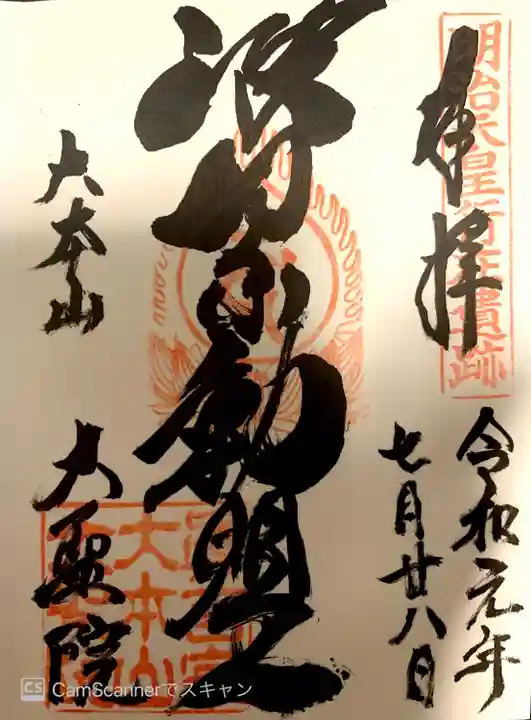 明治天皇行在遺跡
奉拝
令和元年
七月廿八日
波切不動明王
大本山
大聖院
大本山
CS CamScannerでスキャン